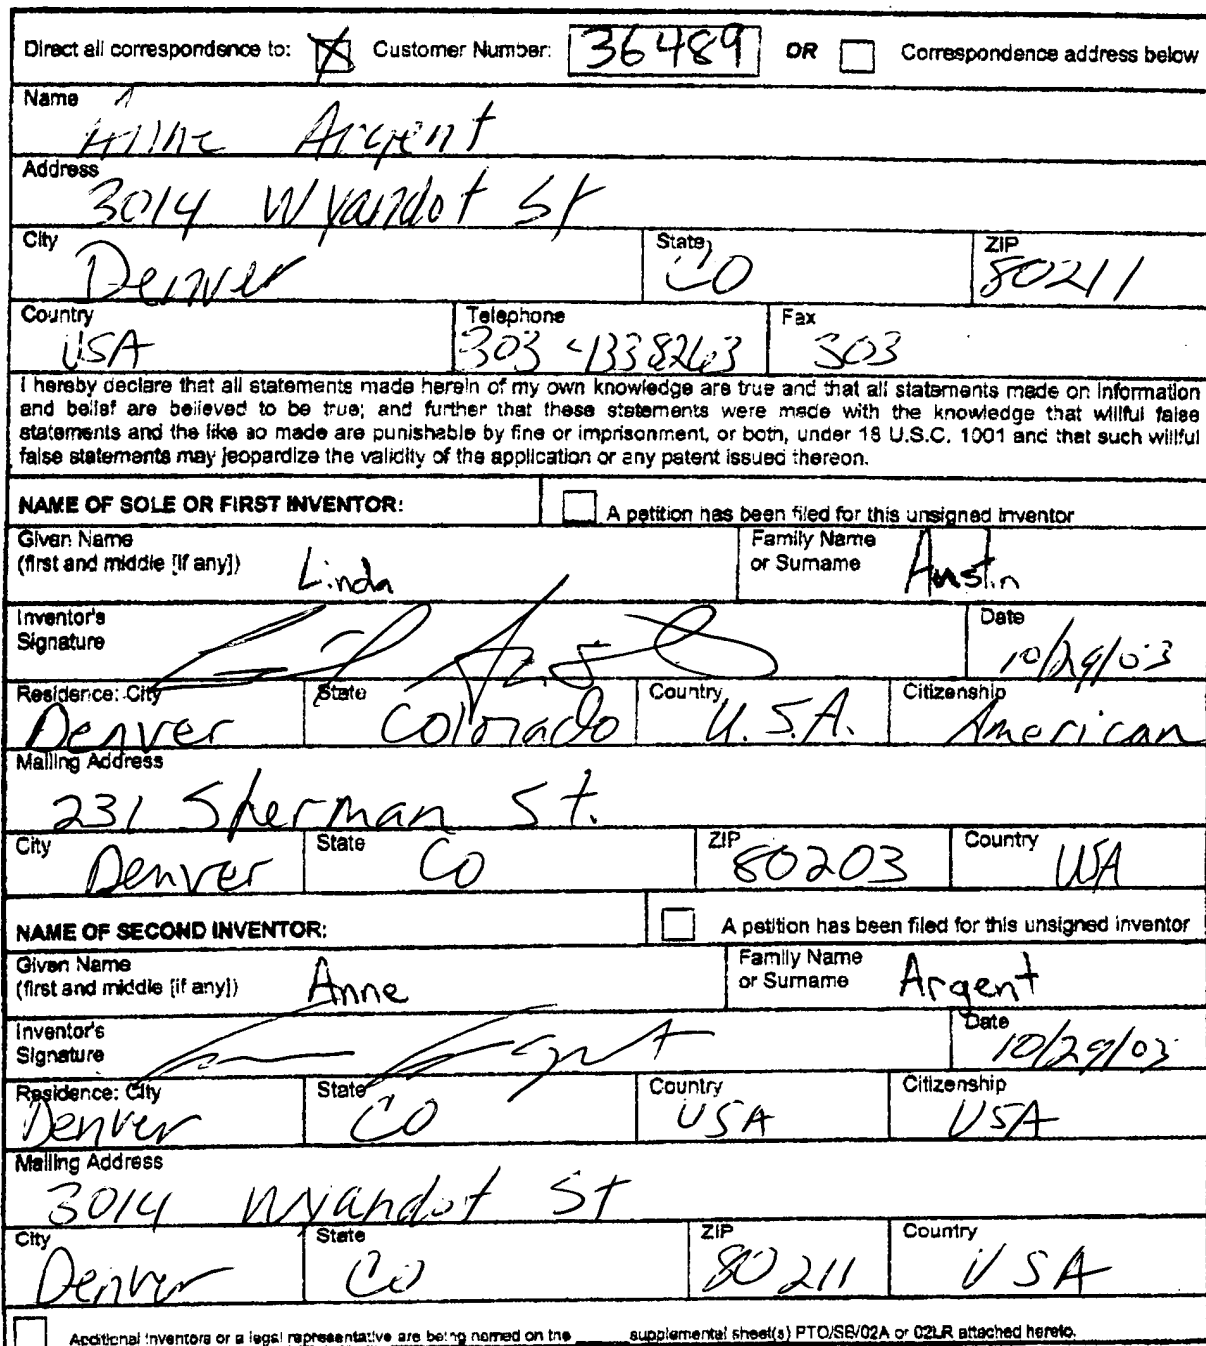 Direct all correspondence to: Customer Number: 36489 OR Correspondence address below
Name
Anne Argent
Address
3014 Wyandot St
City State ZIP
Denver CO 80211
Country Telephone Fax
USA 303 4338263 303
I hereby declare that all statements made herein of my own knowledge are true and that all statements made on information
and belief are believed to be true; and further that these statements were made with the knowledge that willful false
statements and the like so made are punishable by fine or imprisonment, or both, under 18 U.S.C. 1001 and that such willful
false statements may jeopardize the validity of the application or any patent issued thereon.
NAME OF SOLE OR FIRST INVENTOR: A petition has been filed for this unsigned inventor
Given Name Family Name
(first and middle [if any]) Linda or Surname Austin
Inventor's Date
Signature 10/29/03
Residence: City State Country Citizenship
Denver Colorado U.S.A. American
Mailing Address
231 Sherman St.
City State ZIP Country
Denver CO 80203 USA
NAME OF SECOND INVENTOR: A petition has been filed for this unsigned inventor
Given Name Family Name
(first and middle [if any]) Anne or Surname Argent
Inventor's Date
Signature 10/29/03
Residence: City State Country Citizenship
Denver CO USA USA
Mailing Address
3014 Wyandot St
City State ZIP Country
Denver CO 80211 USA
Additional inventors or a legal representative are being named on the ____ supplemental sheet(s) PTO/SB/02A or 02LR attached hereto.